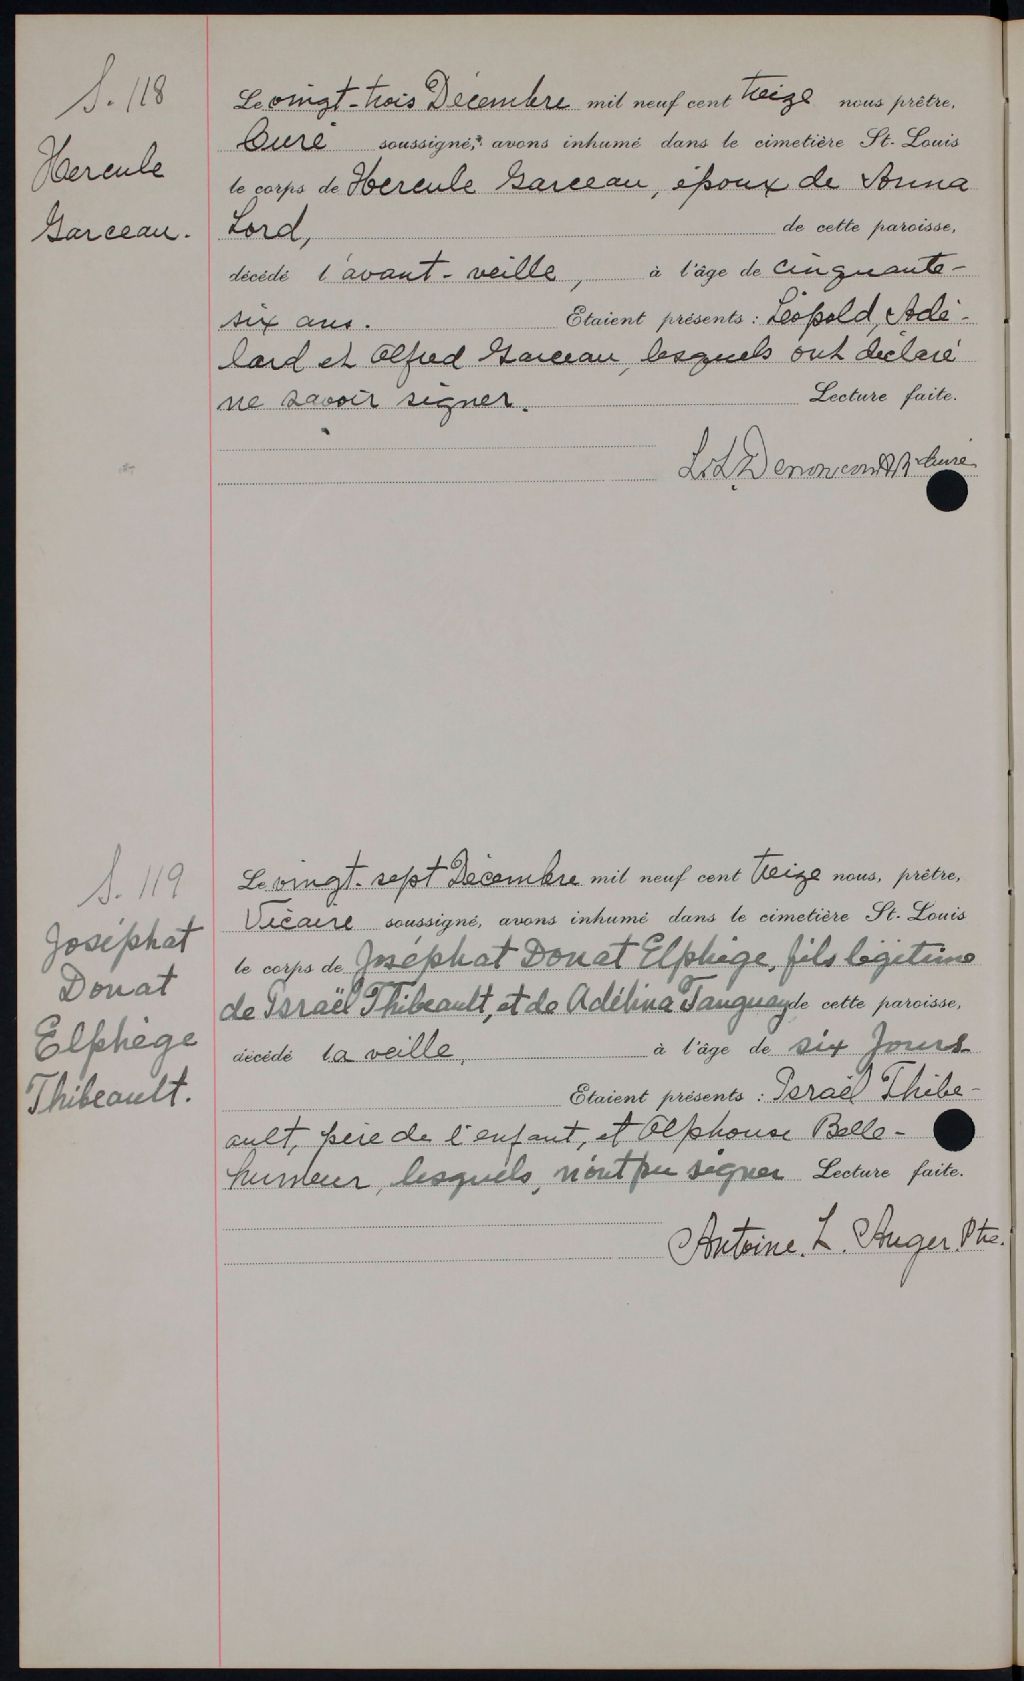 S. 118
Hercule
Garceau.
Le vingt-trois Décembre mil neuf cent treize nous prêtre,
Curé soussigné, avons inhumé dans le cimetière St-Louis
le corps de Hercule Garceau, époux de Anna
Lord, de cette paroisse,
décédé l'avant-veille, à l'âge de cinquante-
six ans. Etaient présents : Léopold, Adé-
lard et Alfred Garceau, lesquels ont déclaré
ne savoir signer. Lecture faite.
Denoncourt Ptr Curé
S. 119
Joséphat
Donat
Elphège
Thibeault.
Le vingt-sept Décembre mil neuf cent treize nous, prêtre,
Vicaire soussigné, avons inhumé dans le cimetière St-Louis
le corps de Joséphat Donat Elphège, fils légitime
de Israël Thibeault, et de Adélina Tanguay de cette paroisse,
décédé la veille, à l'âge de six Jours
Etaient présents : Israël Thibe-
ault, père de l'enfant, et Alphonse Belle-
humeur, lesquels, n'ont pu signer Lecture faite.
Antoine. L. Auger. Ptre.